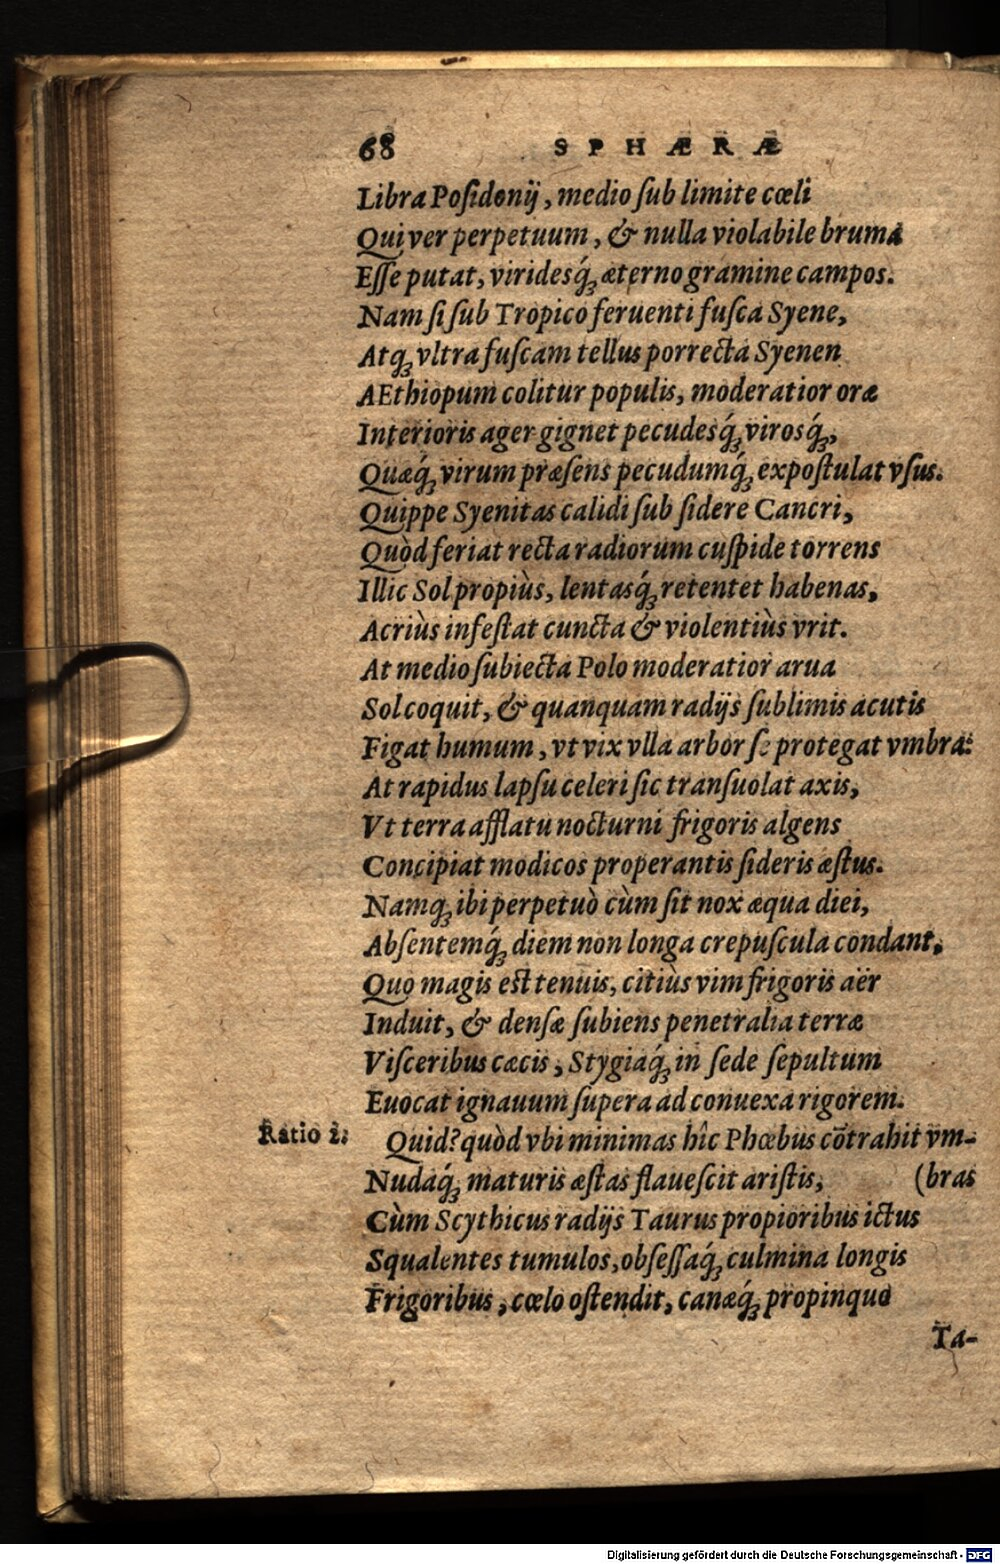 68 SPHÆRÆ
Libra Poſidonij, medio ſub limite cœli
Qui ver perpetuum, & nulla violabile bruma
Eſſe putat, viridesq́ꝫ æterno gramine campos.
Nam ſi ſub Tropico feruenti fuſca Syene,
Atqꝫ vltra fuſcam tellus porrecta Syenen
AEthiopum colitur populis, moderatior oræ
Interioris ager gignet pecudesq́ꝫ virosq́ꝫ,
Quæq́ꝫ virum præſens pecudumq́ꝫ expoſtulat vſus.
Quippe Syenitas calidi ſub ſidere Cancri,
Quòd feriat recta radiorum cuſpide torrens
Illic Sol propiùs, lentasq́ꝫ retentet habenas,
Acriùs infeſtat cuncta & violentiùs vrit.
At medio ſubiecta Polo moderatior arua
Sol coquit, & quanquam radijs ſublimis acutis
Figat humum, vt vix vlla arbor ſe protegat vmbra:
At rapidus lapſu celeri ſic tranſuolat axis,
Vt terra afflatu nocturni frigoris algens
Concipiat modicos properantis ſideris æſtus.
Namqꝫ ibi perpetuò cùm ſit nox æqua diei,
Abſentemq́ꝫ diem non longa crepuſcula condant,
Quo magis est tenuis, citiùs vim frigoris aër
Induit, & denſæ ſubiens penetralia terræ
Viſceribus cæcis, Stygiaq́ꝫ in ſede ſepultum
Euocat ignauum ſupera ad conuexa rigorem.
Ratio 2: Quid? quòd vbi minimas hîc Phœbus cōtrahit vm-
Nudaq́ꝫ maturis æſtas flaueſcit ariſtis, (bras
Cùm Scythicus radijs Taurus propioribus ictus
Squalentes tumulos, obſeſſaq́ꝫ culmina longis
Frigoribus, cœlo oſtendit, canæq́ꝫ propinquo
Ta-
Digitalisierung gefördert durch die Deutsche Forschungsgemeinschaft - DFG